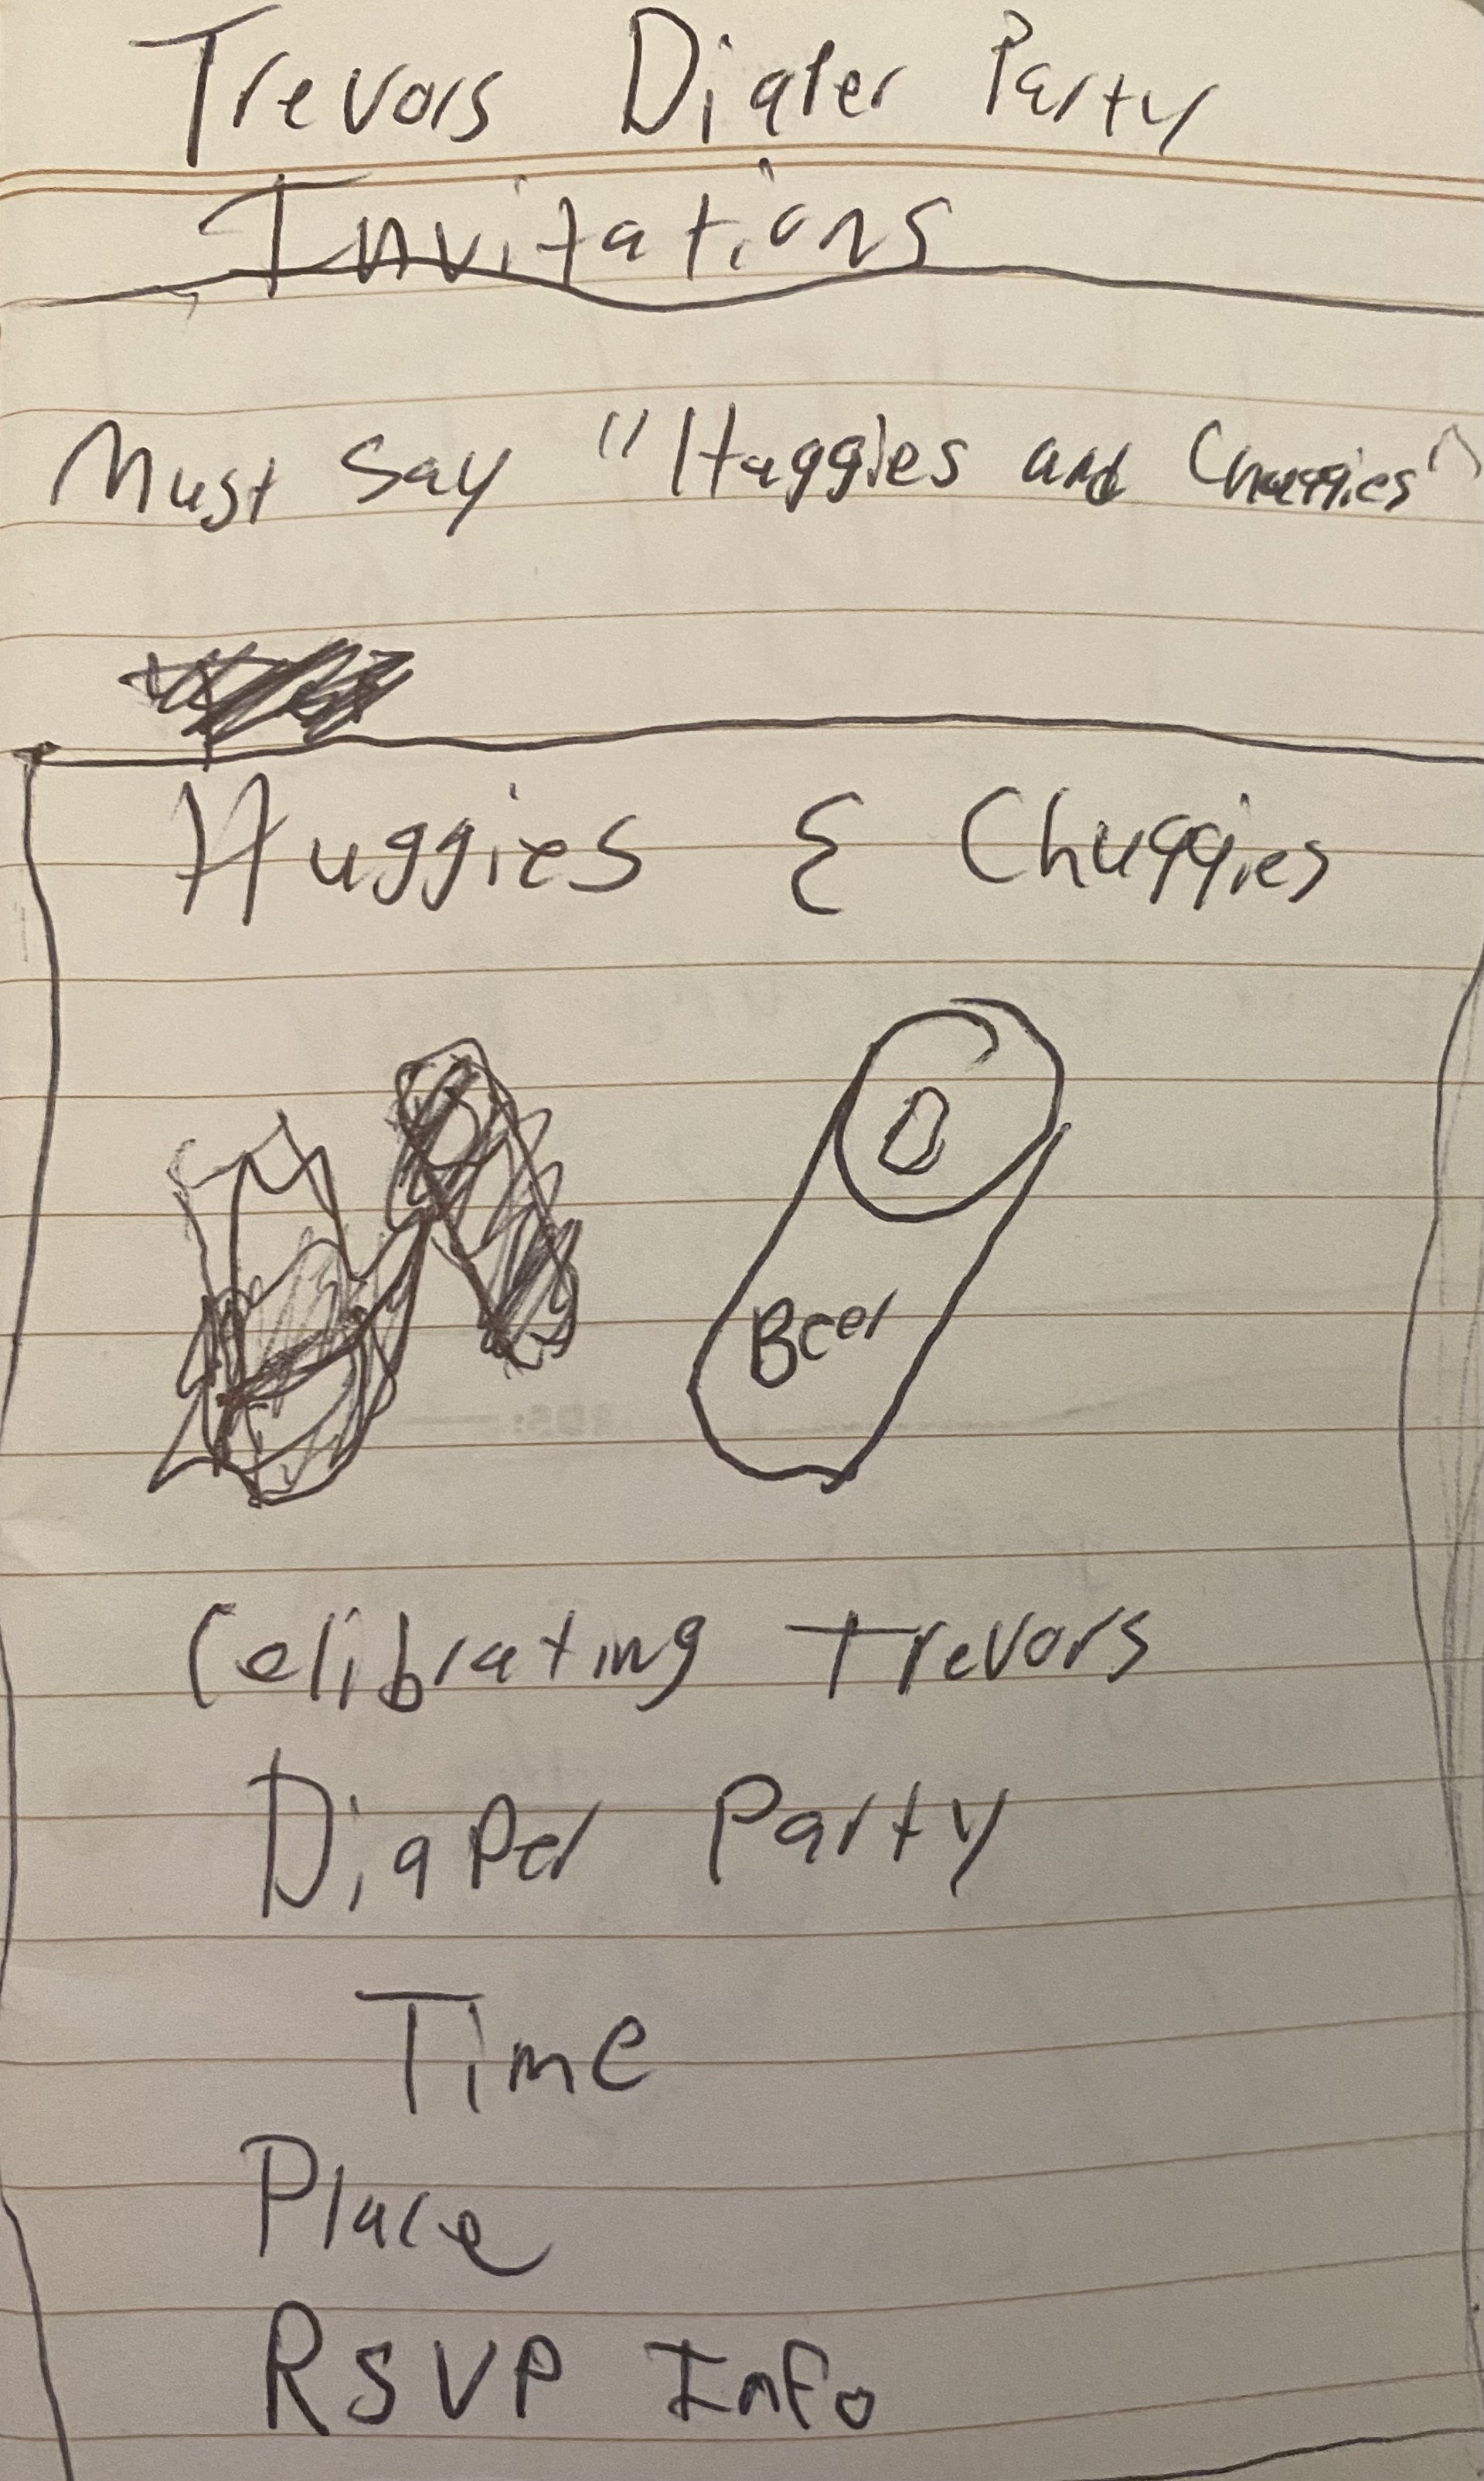 Trevors Diaper Party
Invitations
Must say "Huggies and Chuggies"
Huggies & Chuggies
Beer
Celibrating Trevors
Diaper Party
Time
Place
RSVP Info